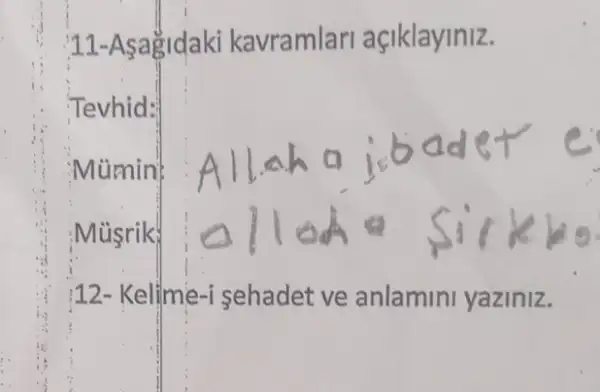 11-Aşağıdaki kavramları açıklayınız.
Tevhid:
Mümin: Allaha ibadet e
Müşrik: allaha Şirk ko
12- Kelime-i şehadet ve anlamını yazınız.